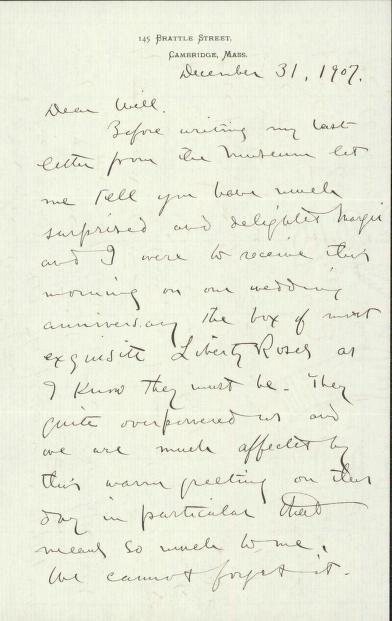 145 BRATTLE STREET,
CAMBRIDGE, MASS.
December 31, 1907.
Dear Will.
Before writing my last
letter from the Museum let
me tell you how much
surprised and delighted Margie
and I were to receive this
morning on our wedding
anniversary the box of most
exquisite Liberty Roses as
I know they must be. They
quite overpowered us and
we are much affected by
this warm greeting on this
day in particular that
means so much to me.
We cannot forget it.